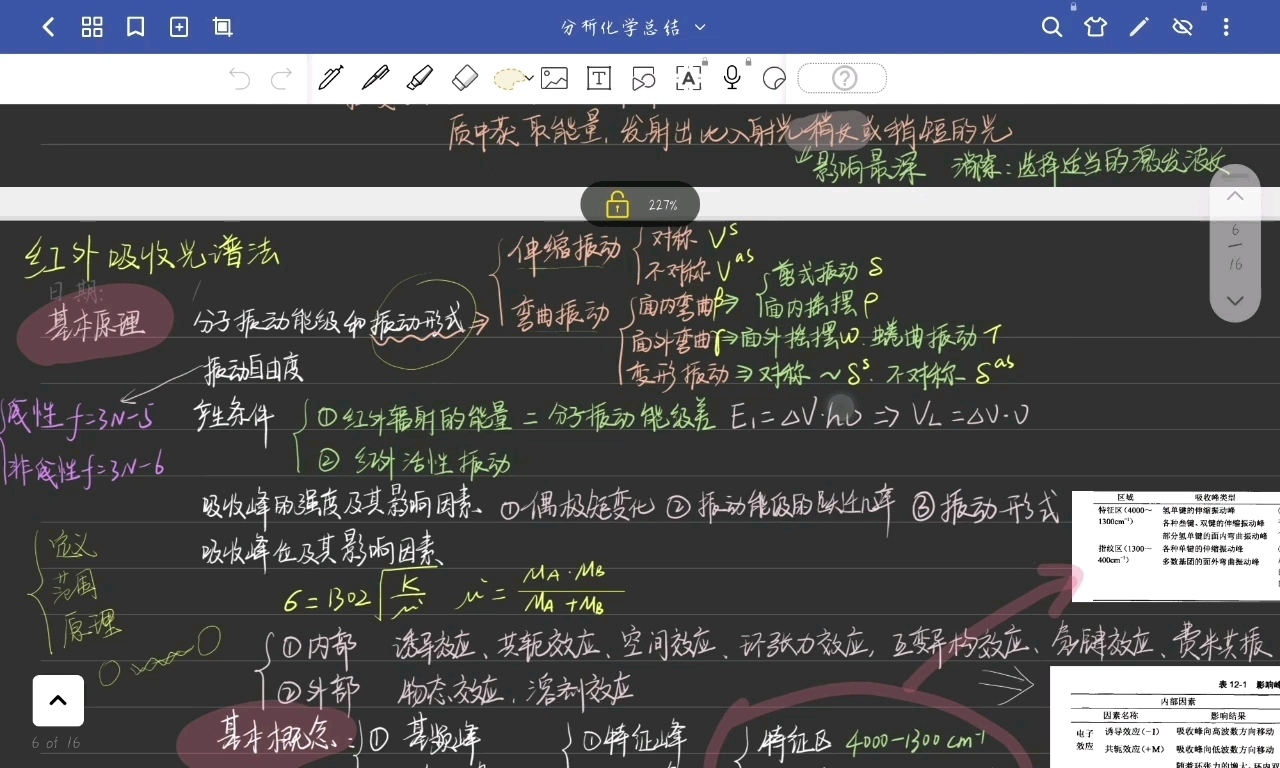 分析化学总结
227%
质中获取能量,发射出比入射光稍长或稍短的光
影响最深 消除:选择适当的激发波长
6
16
红外吸收光谱法
日期:
基本原理
分子振动能级和振动形式
伸缩振动 对称 V^s
不对称 V^as
弯曲振动 面内弯曲β⇒ 剪式振动 δ
面内摇摆 ρ
面外弯曲γ⇒面外摇摆ω.蜷曲振动 τ
变形振动 ⇒对称~δ^s. 不对称~δ^as
振动自由度
线性 f=3N-5
非线性f=3N-6
产生条件 ①红外辐射的能量=分子振动能级差 E₁=ΔV·hυ ⇒ V_L=ΔV·υ
② 红外活性振动
吸收峰的强度及其影响因素 ①偶极矩变化 ②振动能级的跃迁几率 ③振动形式
吸收峰位及其影响因素
定义
范围
原理
σ=1302√(K/μ') μ'=(M_A·M_B)/(M_A+M_B)
①内部 诱导效应、共轭效应、空间效应、环张力效应,互变异构效应、氢键效应、费米共振
②外部 物态效应,溶剂效应
基本概念: ①基频峰 ①特征峰 特征区 4000-1300cm⁻¹
区域 吸收峰类型
特征区(4000~ 氢单键的伸缩振动峰
1300cm⁻¹) 各种叁键、双键的伸缩振动峰
部分氢单键的面内弯曲振动峰
指纹区(1300— 各种单键的伸缩振动峰
400cm⁻¹) 多数基团的面外弯曲振动峰
表 12-1 影响峰
内部因素
因素名称 影响结果
电子 诱导效应(-I) 吸收峰向高波数方向移动
效应 共轭效应(+M) 吸收峰向低波数方向移动
随着环张力的增大,环内双
6 of 16